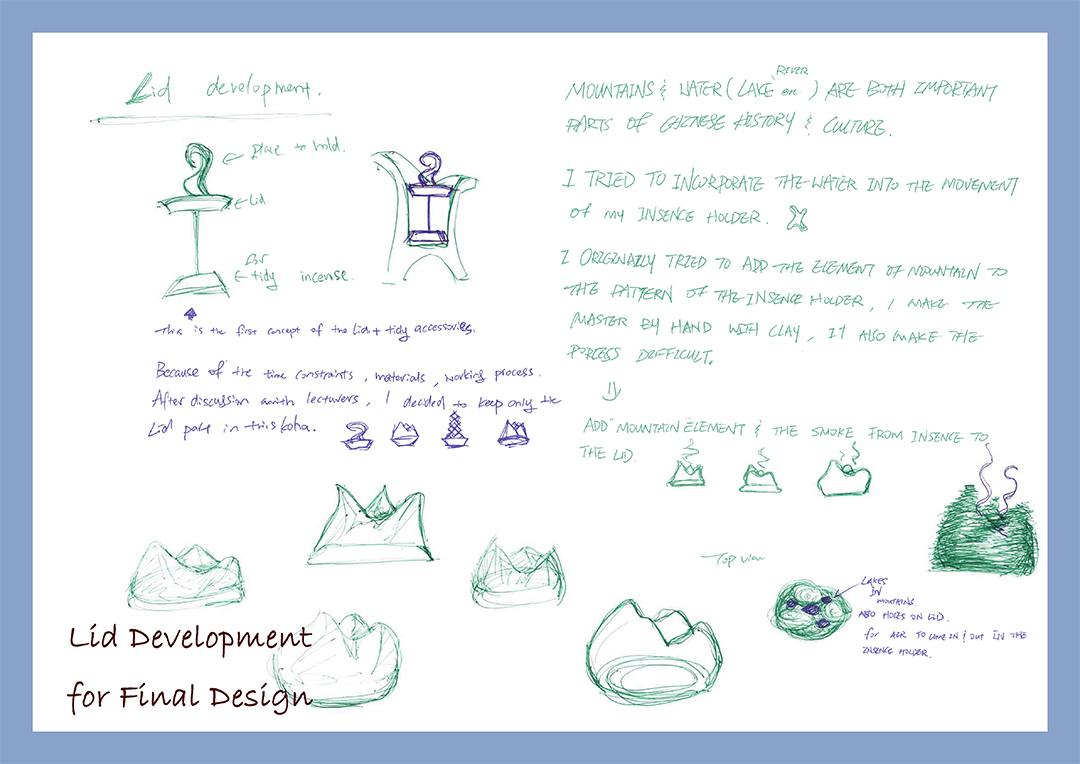 Lid development.
← Place to hold.
← Lid
for
← tidy incense.
This is the first concept of the Lid + tidy accessories.
Because of the time constraints, materials, working process.
After discussion with lecturers, I decided to keep only the
Lid part in this
MOUNTAINS & WATER (LAKE or RIVER) ARE BOTH IMPORTANT
PARTS OF CHINESE HISTORY & CULTURE.
I TRIED TO INCORPORATE THE WATER INTO THE MOVEMENT
OF MY INSENCE HOLDER.
I ORIGINALLY TRIED TO ADD THE ELEMENT OF MOUNTAIN TO
THE PATTERN OF THE INSENCE HOLDER, I MAKE THE
MASTER BY HAND WITH CLAY, IT ALSO MAKE THE
PORCESS DIFFICULT.
ADD MOUNTAIN ELEMENT & THE SMOKE FROM INSENCE TO
THE LID.
Top view
LAKES
IN
MOUNTAINS.
ALSO HOLES ON LID.
for AIR TO COME IN & OUT IN THE
INSENCE HOLDER.
Lid Development
for Final Design